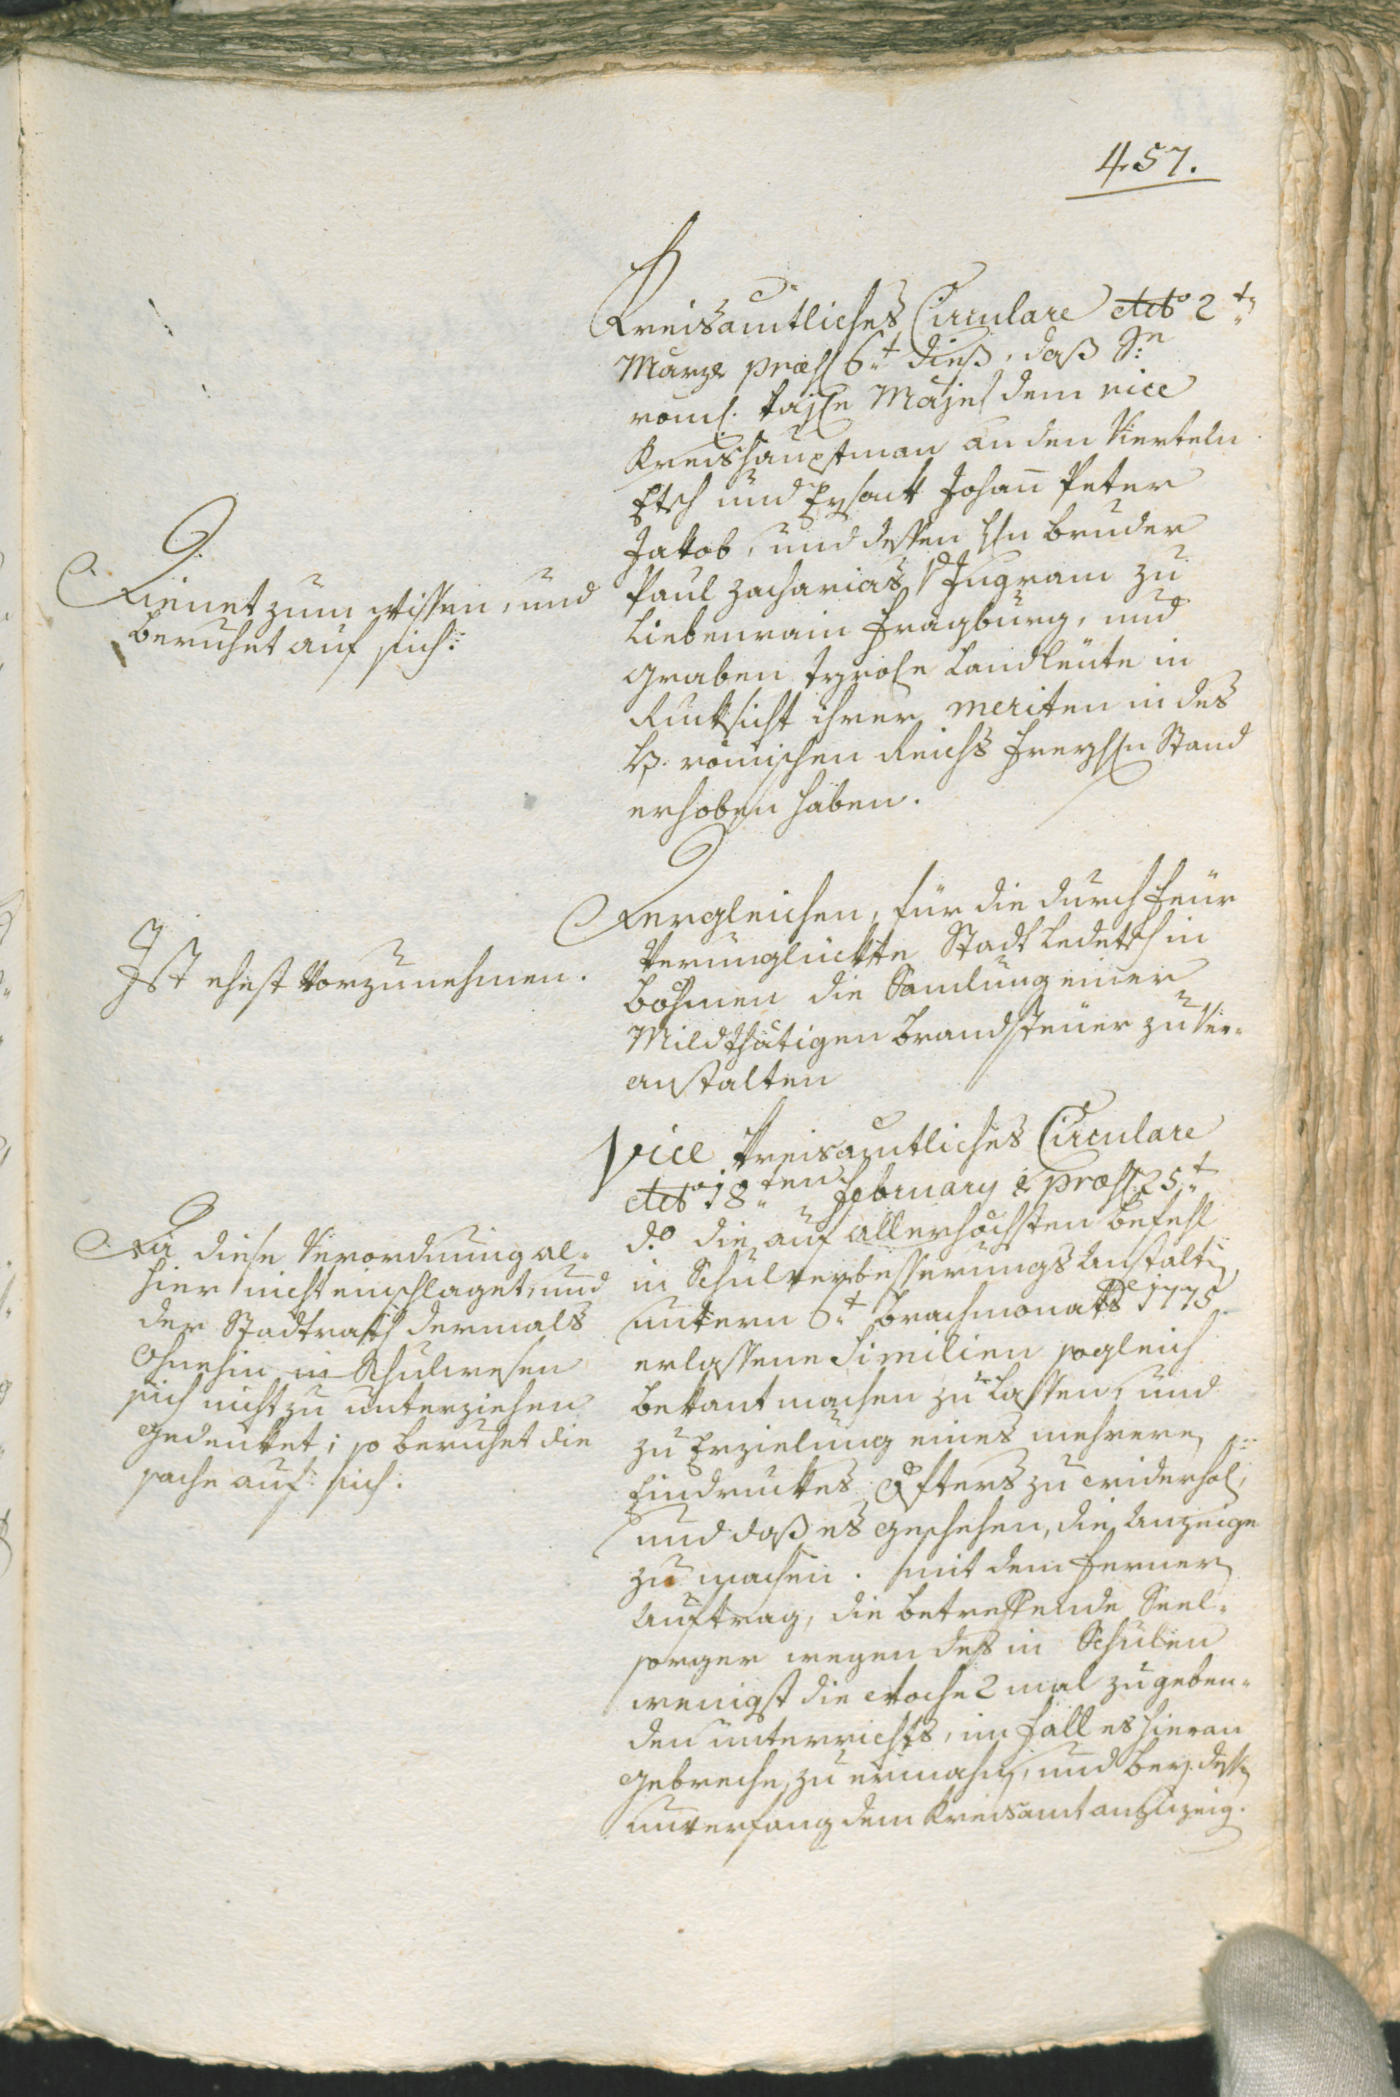 457.
Kreisamtliches Circulare ddto 2t
Marze præs 6t dieß, daß Sr
röms. kajsn Majes dem vice
Kreishauptman an den Vierteln
Etsch und Eysack Johann Peter
Jakob, und dessen Hn Bruder
Paul Zacharias v Ingram zu
Liebenrain Fragburg, und
Graben Tyrolr Landleute in
Rücksicht ihrer meriten in des
H. römischen Reichs Freyhn Stand
erhoben haben.
Dienet zum wissen, und
beruhet auf sich.
Dergleichen, für die durch Feur
verunglückte Stadt Ledetsch in
Böhmen die Samlung einer
Mildthätigen Brandsteuer zu ver-
anstalten
Ist ehest vorzunehmen.
Vice kreisamtliches Circulare
ddto 18ten February & præs 25t
do die auf allerhöchsten Befehl
in Schulverbesserungs Anstalten
untern 6t Brachmonats 1775
erlassene Similien sogleich
bekant machen zu lassen, und
zu Erzielung eines mehrern
Eindruckes öfters zu widerhol,
und daß es geschehen, die Anzeige
zu machen. mit dem fernern
Auftrag, die betreffende Seel-
sorger wegen des in Schulen
wenigst die Woche 2 mal zu geben-
den unterrichts, im fall es hieran
gebreche, zu ermahn, und bey dessen
unterfang dem Kreisamt anzuzeig.
Da diese Verordnung al-
hier nicht einschlaget, und
der Stadtrath dermals
ohnehin in Schulwesen
sich nicht zu unterziehen
gedenket; so beruhet die
sache auf sich.